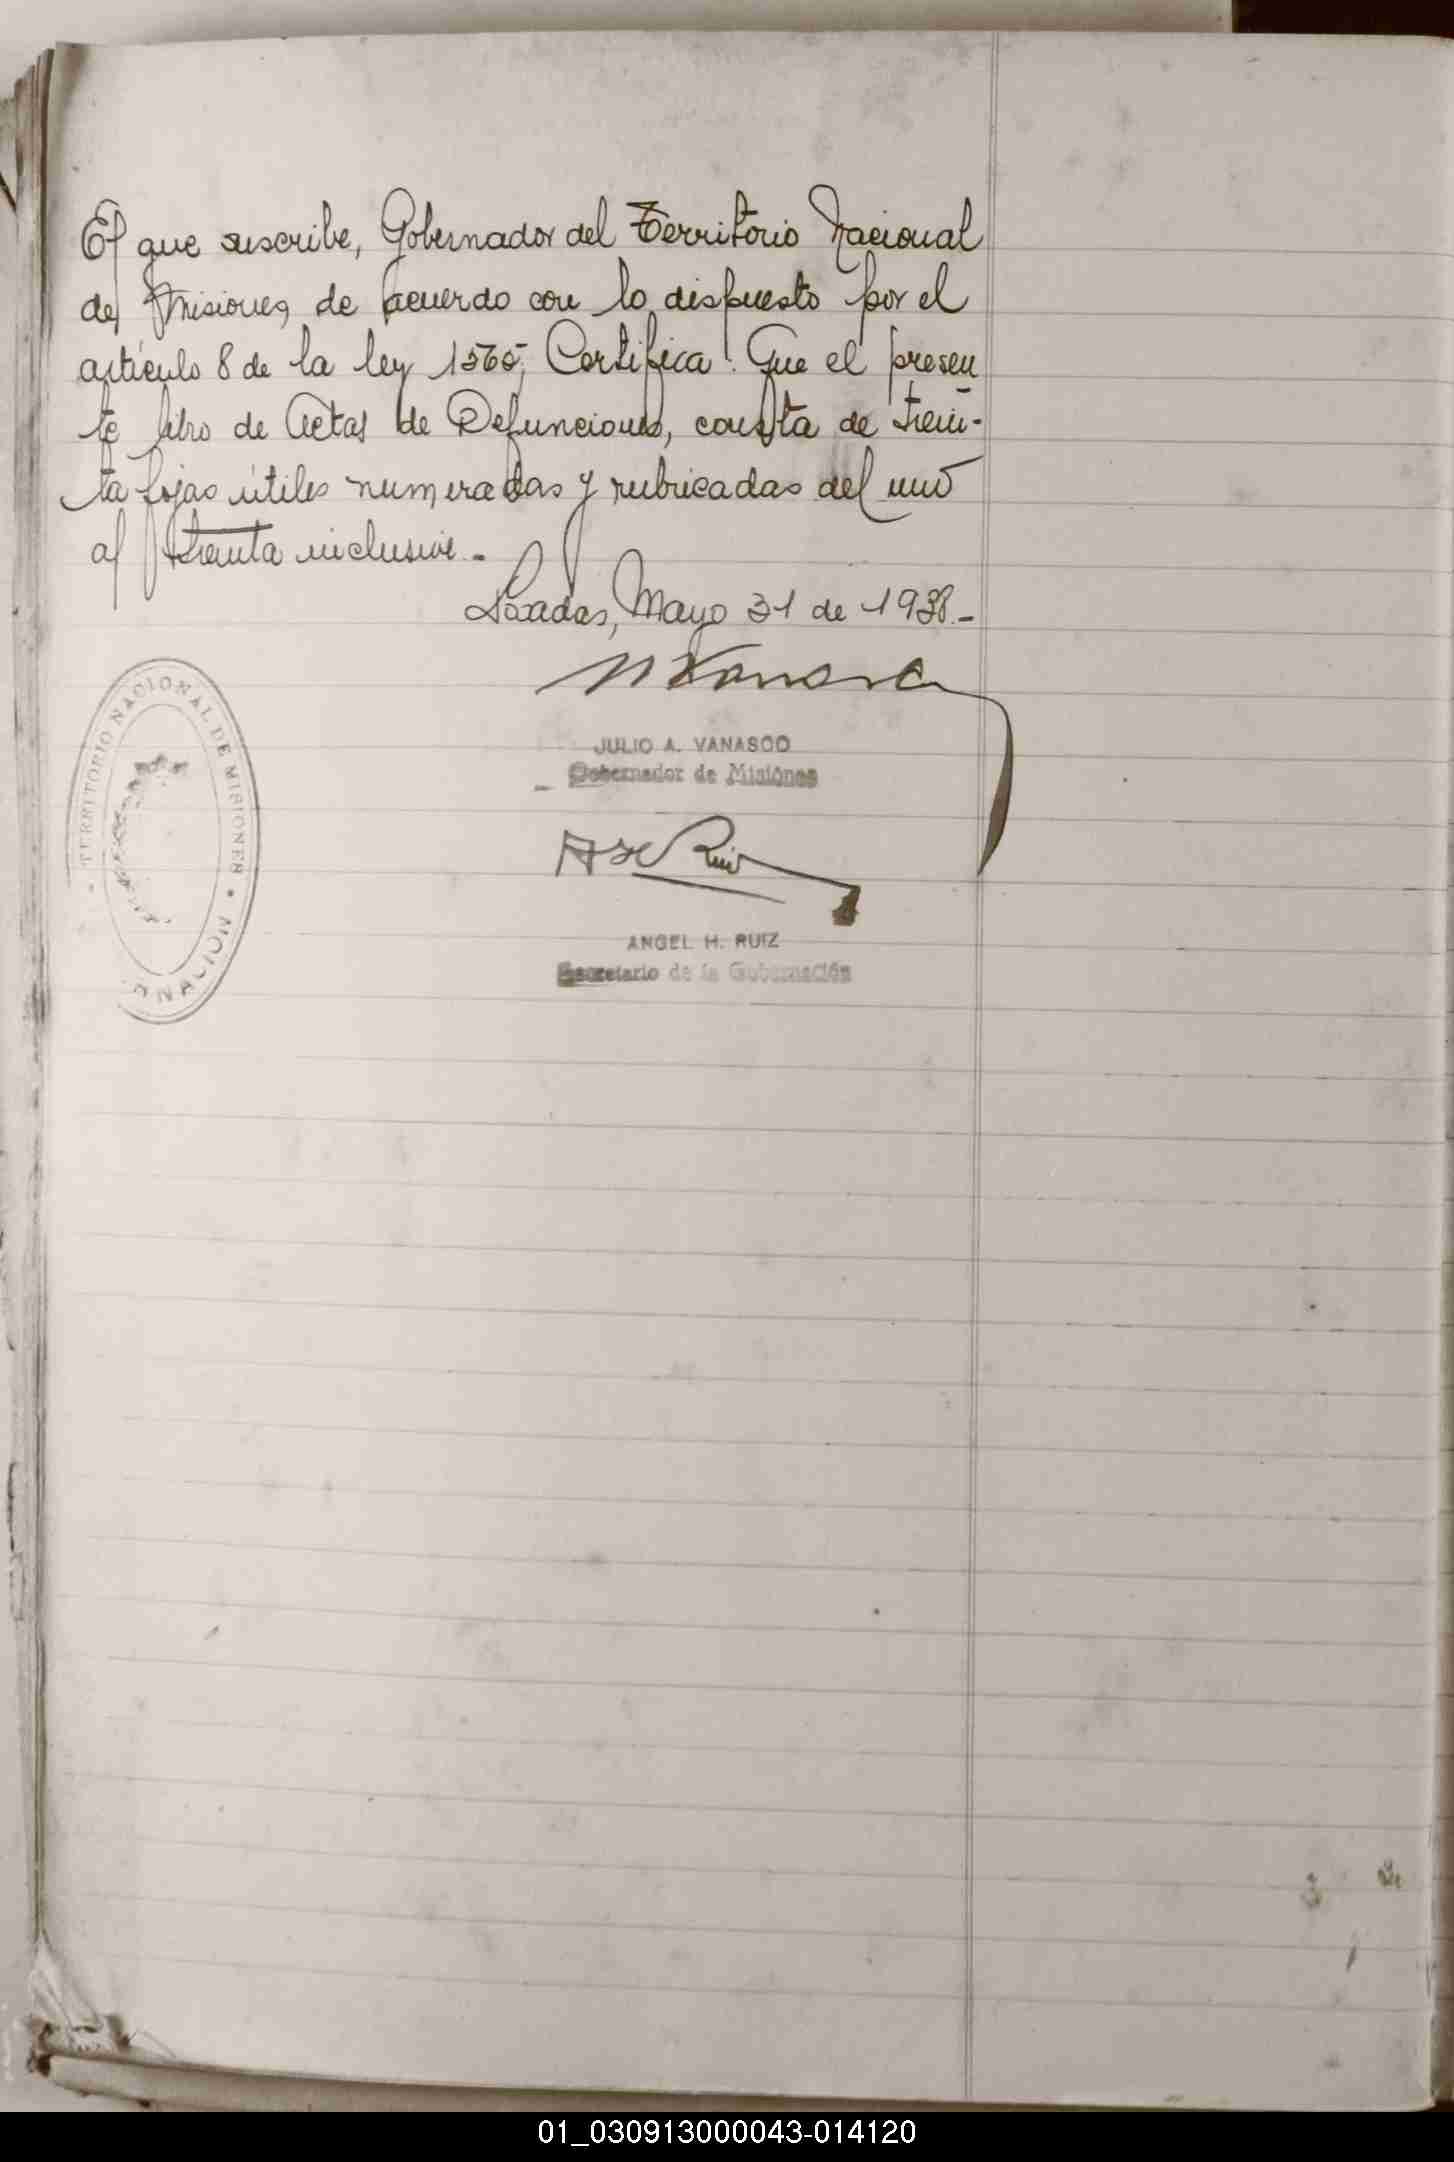 El que suscribe, Gobernador del Territorio Nacional
de Misiones, de acuerdo con lo dispuesto por el
artículo 8 de la ley 1565, Certifica: Que el presen
te libro de Actas de Defunciones, consta de trein-
ta fojas útiles numeradas y rubricadas del uno
al treinta inclusive.-
Posadas, Mayo 31 de 1938.-
TERRITORIO NACIONAL DE MISIONES
JULIO A. VANASCO
Gobernador de Misiónes
A H Ruiz
ANGEL H. RUIZ
Secretario de la Gobernación
01_030913000043-014120